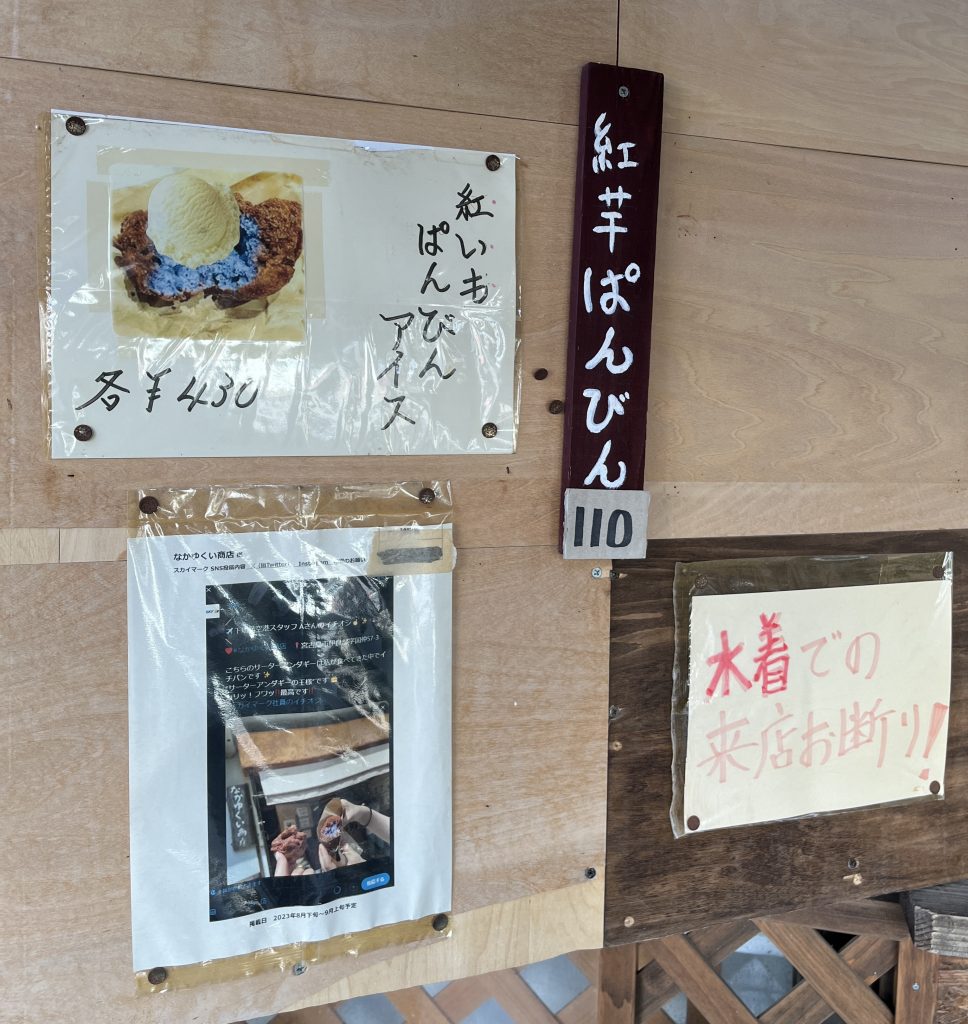 紅いも
ぱんびん
アイス
各￥430
紅芋ぱんびん
110
なかゆくい商店
スカイマーク SNS投稿内容
こちらのサーターアンダギーは私が食べてきた中でイ
チバンです
"サーターアンダギーの王様"です
最高です
スカイマーク社員のイチオシ
なかゆくい
掲載日 2023年8月下旬～9月上旬予定
水着での
来店お断り!